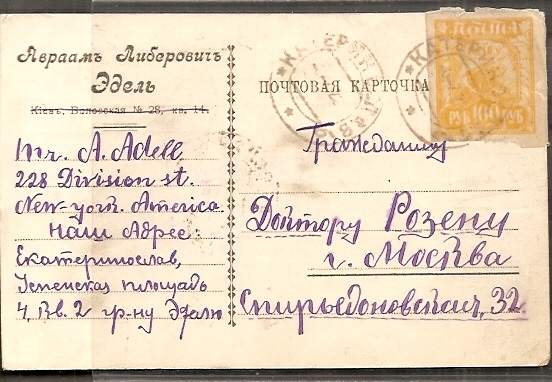 Авраамъ Либеровичъ
Эдель
Кіевъ, Воловская № 28, кв. 14.
Mr. A. Adell
228 Division st.
New-York. America.
Наш Адрес:
Екатеринослав,
Успенская площадь
4, кв. 2 гр-ну Эделю
ПОЧТОВАЯ КАРТОЧКА
Гражданину
Доктору Розену
г. Москва
Спирьедоновская, 32.
ПОЧТА
РУБ 100 РУБ